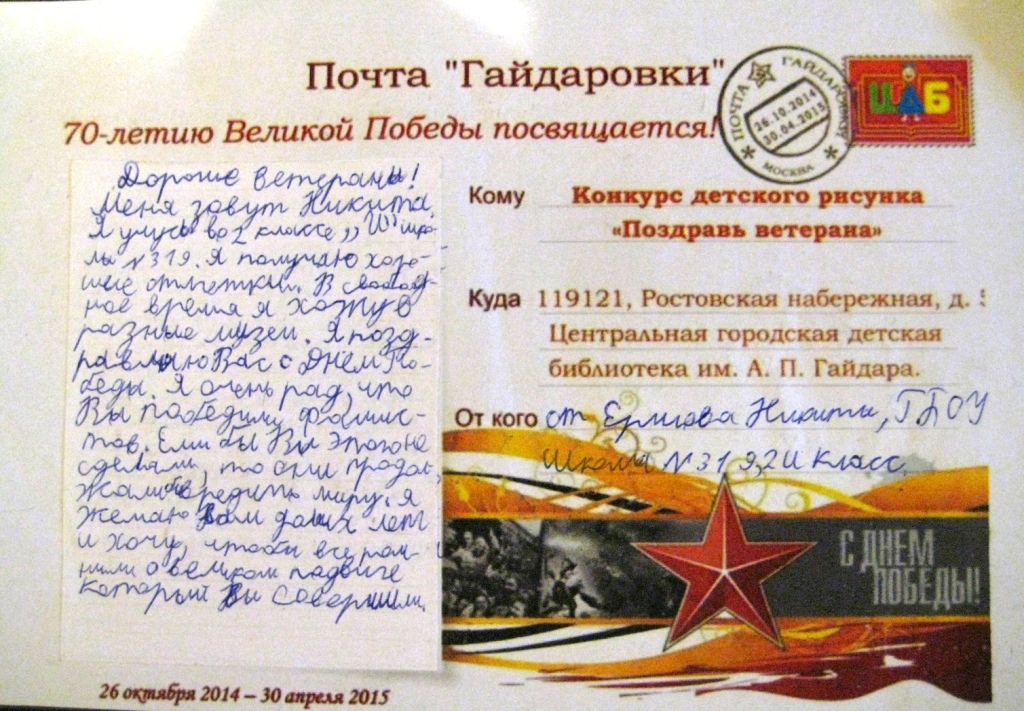 Почта "Гайдаровки"
70-летию Великой Победы посвящается!
ПОЧТА ГАЙДАРОВКИ
26.10.2014
30.04.2015
МОСКВА
ЦДБ
Дорогие ветераны!
Меня зовут Никита.
Я учусь во 2 классе „И" шко-
лы №319. Я получаю хоро-
шие отметки. В свобод-
ное время я хожу в
разные музеи. Я позд-
равляю Вас с Днём По-
беды. Я очень рад, что
Вы победили фашис-
тов. Если бы Вы этого не
сделали, то они продол-
жали бы вредить миру. Я
желаю Вам долгих лет
и хочу, чтобы все пом-
нили о великом подвиге
который Вы совершили.
26 октября 2014 – 30 апреля 2015
Кому Конкурс детского рисунка
«Поздравь ветерана»
Куда 119121, Ростовская набережная, д.
Центральная городская детская
библиотека им. А. П. Гайдара.
От кого от Ермкова Никиты, ГБОУ
Школа №319, 2 И класс.
С ДНЕМ
ПОБЕДЫ!